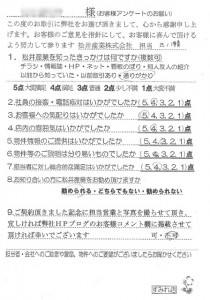 様 (お客様アンケートのお願い)
この度のお取引に弊社をお選び頂きまして、心から感謝申し上げます。
お客様のご意見を指針にして、お客様に喜んで頂けるよう努力して参ります 拾井産業株式会社 担当
1. 拾井産業を知ったきっかけは何ですか(複数可)
チラシ・情報誌・HP・ネット・情報のぼり・知人友人の紹介
以前から知っていた・以前取引あり・通りがかり
5点大変満足 4点満足 3点普通 2点少し不満 1点大変不満
2.社員の接客・電話応対はいかがでしたか (5,4,3,2,1)点
3.お客様への気配りはいかがでしたか (5,4,3,2,1)点
4.店内の雰囲気はいかがでしたか (5,4,3,2,1)点
5.物件情報のご提供はいかがでしたか (5,4,3,2,1)点
6.物件等のご説明は分り易いものでしたか (5,4,3,2,1)点
7.担当者に対し総合的な満足度はいかがでしたか (5,4,3,2,1)点
8.お知り合いの方に拾井産業をお勧め頂けますか
勧められる・どちらでもない・勧められない
9.ご契約頂きました記念に担当営業と写真を撮らせて頂き、
宜しければ弊社HPブログのお客様コメント欄に掲載させて
頂ければ幸いでございます 可・不可
担当者・会社へのご助言や要望、物件へのご要望がございましたらお聞かせください
すみれ店